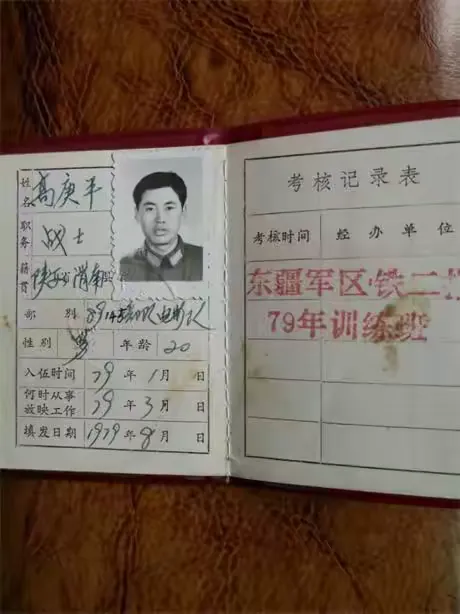 姓名 高庚平
职务 战士
籍贯 陕西渭南
部别 89
性别 男 年龄 20
入伍时间 79年1月 日
何时从事放映工作 79年3月 日
填发日期 1979年8月 日
考核记录表
考核时间 经办单位
东疆军区·铁二
79年训练班